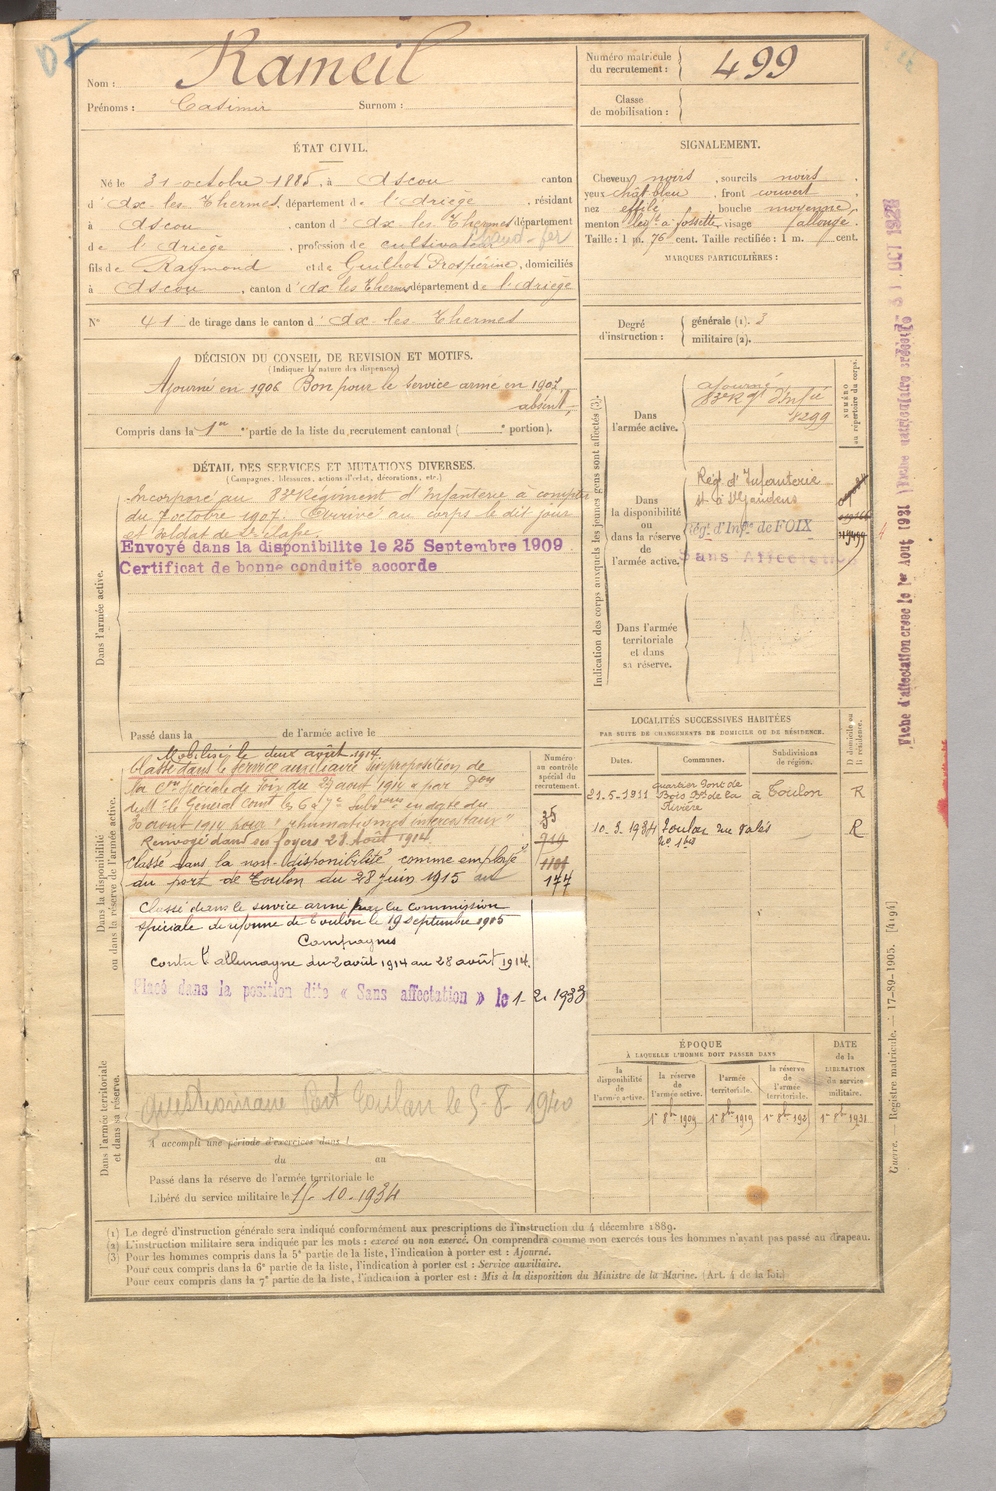 Nom : Rameil
Prénoms : Casimir Surnom :
Numéro matricule du recrutement : 499
Classe de mobilisation :
ÉTAT CIVIL.
Né le 31 octobre 1885, à Ascou canton
d'Ax-les-Thermes, département de l'Ariège, résidant
à Ascou, canton d'Ax-les-Thermes département
de l'Ariège, profession de cultivateur
fils de Raymond et de Guilhot Prospérine, domiciliés
à Ascou, canton d'Ax les Thermes département de l'Ariège
N° 41 de tirage dans le canton d'Ax-les-Thermes
SIGNALEMENT.
Cheveux noirs, sourcils noirs,
yeux chât. bleu, front couvert,
nez effilé, bouche moyenne,
menton à fossette, visage allongé.
Taille : 1 m. 76 cent. Taille rectifiée : 1 m. cent.
MARQUES PARTICULIÈRES :
Degré d'instruction : générale (1). 3
militaire (2).
DÉCISION DU CONSEIL DE REVISION ET MOTIFS.
(Indiquer la nature des dispenses)
Ajourné en 1906 Bon pour le service armé en 1907
absent
Compris dans la 1re partie de la liste du recrutement cantonal ( e portion).
DÉTAIL DES SERVICES ET MUTATIONS DIVERSES.
(Campagnes, blessures, actions d'éclat, décorations, etc.)
Dans l'armée active.
Incorporé au 83e Régiment d'Infanterie à compter
du 7 octobre 1907. Arrivé au corps le dit jour
et soldat de 2e classe.
Envoyé dans la disponibilite le 25 Septembre 1909
Certificat de bonne conduite accorde
Passé dans la de l'armée active le
Indication des corps auxquels les jeunes gens sont affectés (3).
NUMÉRO au répertoire du corps.
Dans l'armée active.
ajourné
83e Rgt d'Infie
8299
Dans la disponibilité ou dans la réserve de l'armée active.
Rég. d'Infanterie
St Gaudens
Rég. d'Infie de FOIX
Sans Affectation
Dans l'armée territoriale et dans sa réserve.
LOCALITÉS SUCCESSIVES HABITÉES
PAR SUITE DE CHANGEMENTS DE DOMICILE OU DE RÉSIDENCE.
Dates. Communes. Subdivisions de région. D domicile ou R résidence.
21.5-1911 quartier Pont de Bois Bd de la Rivière à Toulon R
10.3.1934 Toulon rue Valés No 1 bis R
Dans la disponibilité ou dans la réserve de l'armée active.
Numéro au contrôle spécial du recrutement.
Mobilisé le deux août 1914.
Classé dans le service auxiliaire sur proposition de
la Con spéciale de Foix du 27 aout 1914 et par
de Mr le Général Comt les 6 & 7e en date du
30 aout 1914 pour "rhumatismes intercostaux"
Renvoyé dans ses foyers 28 Août 1914.
Classé dans la non-disponibilité comme employé
du port de Toulon du 28 Juin 1915 au
35
714
1109
177
Classé dans le service armé par la Commission
spéciale de réforme de Toulon le 19 septembre 1915
Campagnes
contre l'allemagne du 2 août 1914 au 28 août 1914.
Placé dans la position dite « Sans affectation » le 1-2-1933
Dans l'armée territoriale et dans sa réserve.
questionnaire Port Toulon le 5-8-1940
A accompli une période d'exercices dans l
du au
Passé dans la réserve de l'armée territoriale le
Libéré du service militaire le 15-10-1934
ÉPOQUE
À LAQUELLE L'HOMME DOIT PASSER DANS
la disponibilité de l'armée active. la réserve de l'armée active. l'armée territoriale. la réserve de l'armée territoriale. DATE de la LIBÉRATION du service militaire.
1er 8bre 1909 1er 8bre 1919 1er 8bre 1925 1er 8bre 1931
(1) Le degré d'instruction générale sera indiqué conformément aux prescriptions de l'instruction du 4 décembre 1889.
(2) L'instruction militaire sera indiquée par les mots : exercé ou non exercé. On comprendra comme non exercés tous les hommes n'ayant pas passé au drapeau.
(3) Pour les hommes compris dans la 5e partie de la liste, l'indication à porter est : Ajourné.
Pour ceux compris dans la 6e partie de la liste, l'indication à porter est : Service auxiliaire.
Pour ceux compris dans la 7e partie de la liste, l'indication à porter est : Mis à la disposition du Ministre de la Marine. (Art. 4 de la loi.)
Guerre. — Registre matricule. — 17-89-1905. [4194]
Fiche d'affectation créée le 1er Aout 1921